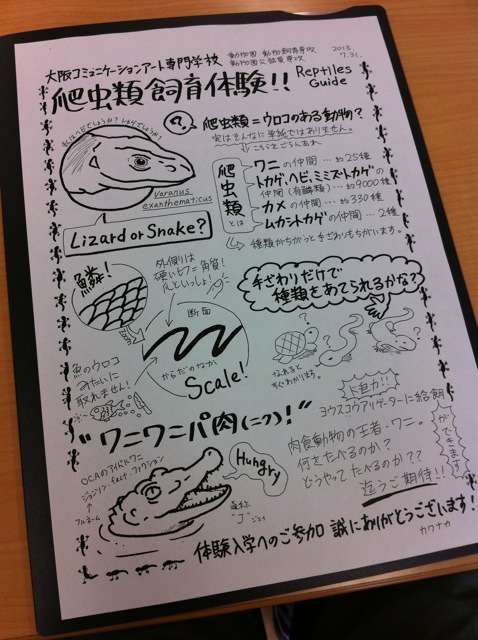 大阪コミュニケーションアート専門学校
動物園・動物飼育専攻
動物園公務員専攻
2013.
7.31.
爬虫類飼育体験!!
Reptiles
Guide
私はヘビでしょうか?トカゲでしょうか?
?
爬虫類=ウロコのある動物?
実はそんなに単純ではありません。
こちらをごらんあれ
爬虫類とは
ワニの仲間…約25種
トカゲ、ヘビ、ミミズトカゲの
仲間(有鱗類)…約9000種
カメの仲間…約330種
ムカシトカゲの仲間…2種
種類がちがうと手ざわりもちがいます。
varanus
exanthematicus
Lizard or Snake?
鱗!
外側は
硬いケラチン角質!
爪といっしょ!
断面
からだのなか
Scale!
魚のウロコ
みたいに
取れません!
手ざわりだけで
種類をあてられるかな?
?
?
?
なれると
すぐわかります。
"ワニワニパ肉(ニク)!"
ド迫力!!
ヨウスコウアリゲーターに給餌
ができます
肉食動物の王者・ワニ。
何をたべるのか?
どうやってたべるのか??
乞うご期待!!
OCAのアイドルワニ
フルネーム
Hungry
通称
"J"ジェイ
体験入学へのご参加 誠にありがとうございます!
カワナカ